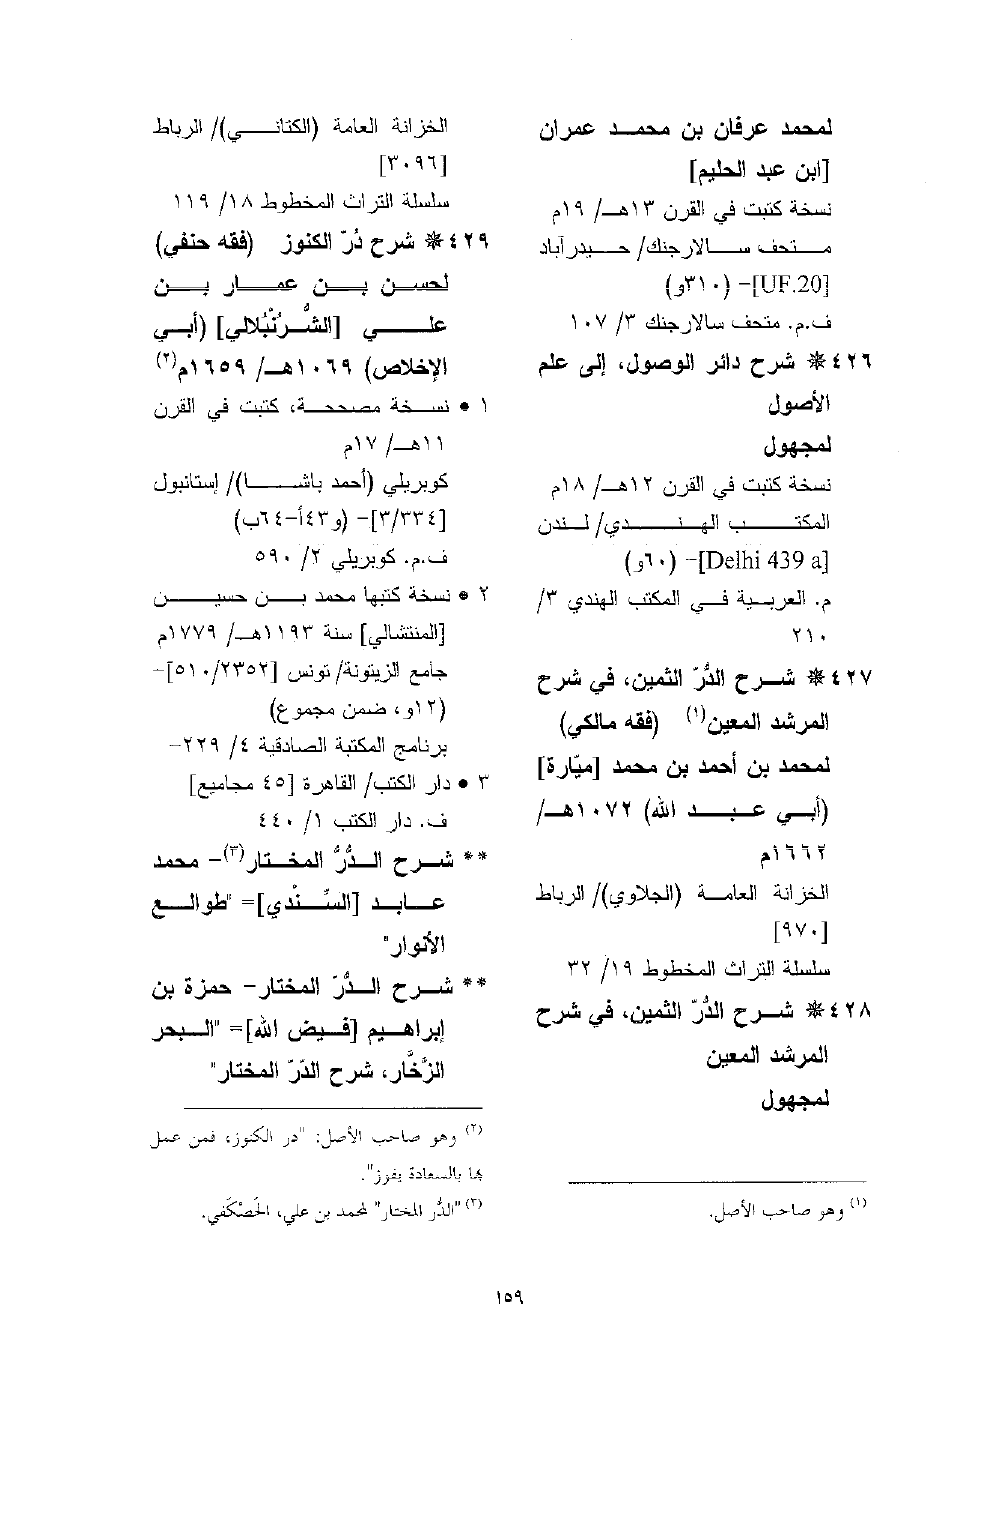 لمحمد عرفان بن محمد عمران
[ابن عبد الحليم]
نسخة كتبت في القرن ١٣هـ/ ١٩م
متحف سالارجنك/ حيدرآباد
[UF.20]- (٣١٠و)
ف.م. متحف سالارجنك ٣/ ١٠٧
٤٢٦* شرح دائر الوصول، إلى علم
الأصول
لمجهول
نسخة كتبت في القرن ١٢هـ/ ١٨م
المكتب الهندي/ لندن
[Delhi 439 a]- (٦٠و)
م. العربية في المكتب الهندي ٣/
٢١٠
٤٢٧* شرح الدُّرّ الثمين، في شرح
المرشد المعين(١) (فقه مالكي)
لمحمد بن أحمد بن محمد [ميّارة]
(أبي عبد الله) ١٠٧٢هـ/
١٦٦٢م
الخزانة العامة (الجلاوي)/ الرباط
[٩٧٠]
سلسلة التراث المخطوط ١٩/ ٣٢
٤٢٨* شرح الدُّرّ الثمين، في شرح
المرشد المعين
لمجهول
(١) وهو صاحب الأصل.
الخزانة العامة (الكتاني)/ الرباط
[٣٠٩٦]
سلسلة التراث المخطوط ١٨/ ١١٩
٤٢٩* شرح دُرّ الكنوز (فقه حنفي)
لحسن بن عمار بن
علي [الشُّرُنْبُلالي] (أبي
الإخلاص) ١٠٦٩هـ/ ١٦٥٩م(٢)
١ • نسخة مصححة، كتبت في القرن
١١هـ/ ١٧م
كوبريلي (أحمد باشا)/ إستانبول
[٣/٣٣٤]- (و٤٣أ-٦٤ب)
ف.م. كوبريلي ٢/ ٥٩٠
٢ • نسخة كتبها محمد بن حسين
[المنتشالي] سنة ١١٩٣هـ/ ١٧٧٩م
جامع الزيتونة/ تونس [٥١٠/٢٣٥٢]-
(١٢و، ضمن مجموع)
برنامج المكتبة الصادقية ٤/ ٢٢٩-
٣ • دار الكتب/ القاهرة [٤٥ مجاميع]
ف. دار الكتب ١/ ٤٤٠
** شرح الدُّرُّ المختار(٣)- محمد
عابد [السِّنْدي]= "طوالع
الأنوار"
** شرح الدُّرّ المختار- حمزة بن
إبراهيم [فيض الله]= "البحر
الزَّخَّار، شرح الدّرّ المختار"
(٢) وهو صاحب الأصل: "در الكنوز، فمن عمل
بها بالسعادة يفوز".
(٣) "الدُّر المختار" لمحمد بن علي، الحَصْكَفي.
١٥٩